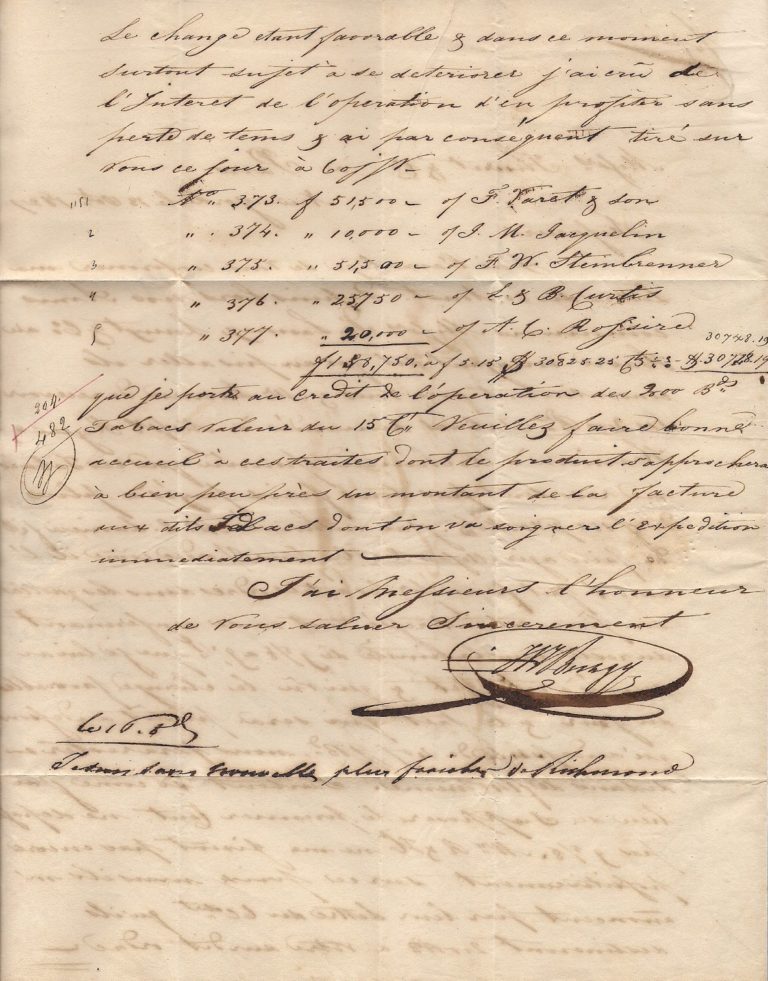 Le change etant favorable & dans ce moment
surtout sujet à se deteriorer j'ai crû de
l'Interet de l'operation d'en profiter sans
perte de tems & ai par conséquent tiré sur
Vous ce jour à 60
1151 No. 373. f 51,500 – of F. Varet & son
2 " 374. " 10,000 – of J. M. Jacquelin
3 " 375. " 51,500 – of F. W. Steinbrenner
4 " 376. " 25,750 – of L. & B. Curtis
5 " 377. " 20,000 – of A. C. Rossire
30748.19
f 158,750. à f 5.15 $ 30825.25 $ 30748.19
que je porte au credit de l'operation des 2000 Bds
204.
482
Tabacs valeur du 15 Veuillez faire bonne
accueil à ces traites dont le produit s'approchera
à bien peu près du montant de la facture
aux dits Tabacs dont on va soigner l'Expedition
immediatement
J'ai Messieurs l'honneur
de Vous saluer Sincerement
le 16.
Je suis sans nouvelles plus fraiches de Richmond